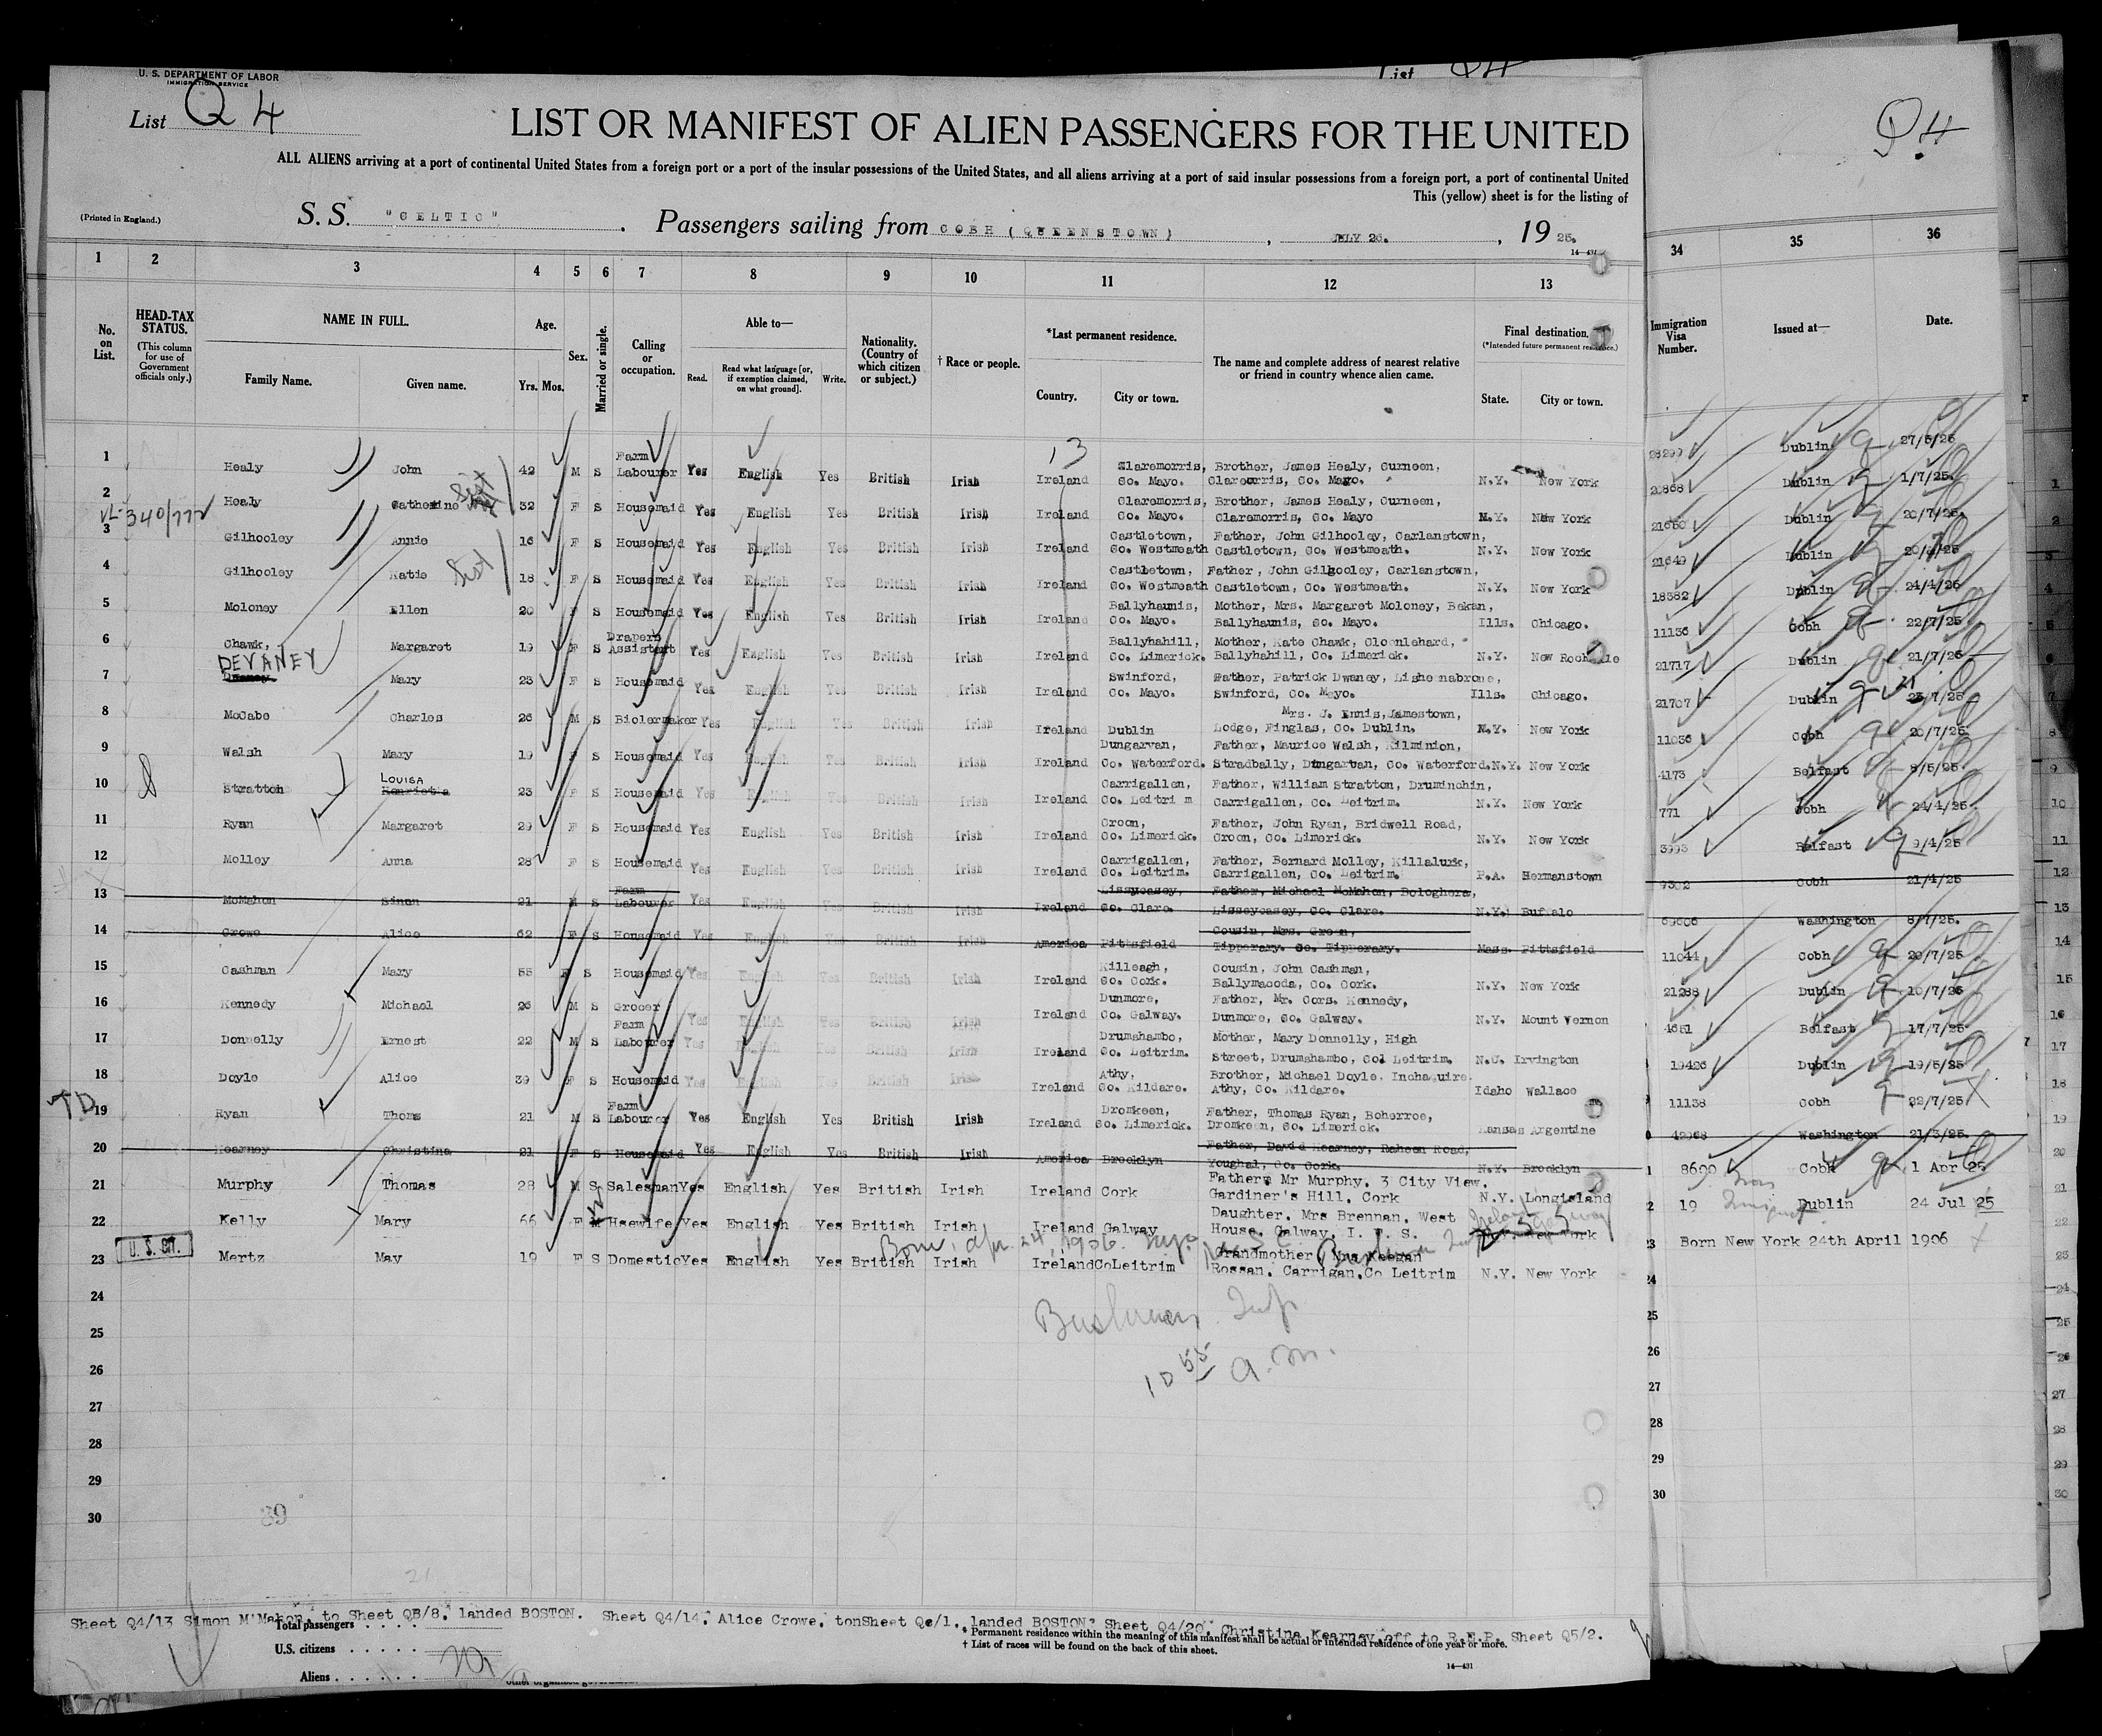 U. S. DEPARTMENT OF LABOR
IMMIGRATION SERVICE
List Q 4
List Q4
Q4
LIST OR MANIFEST OF ALIEN PASSENGERS FOR THE UNITED
ALL ALIENS arriving at a port of continental United States from a foreign port or a port of the insular possessions of the United States, and all aliens arriving at a port of said insular possessions from a foreign port, a port of continental United
This (yellow) sheet is for the listing of
(Printed in England.)
S. S. "CELTIC" . Passengers sailing from COBH (QUEENSTOWN) , JULY 26. , 19 25.
14—431
1 2 3 4 5 6 7 8 9 10 11 12 13 34 35 36
No. on List. HEAD-TAX STATUS. (This column for use of Government officials only.) NAME IN FULL. Family Name. Given name. Age. Yrs. Mos. Sex. Married or single. Calling or occupation. Able to— Read. Read what language [or, if exemption claimed, on what ground]. Write. Nationality. (Country of which citizen or subject.) † Race or people. *Last permanent residence. Country. City or town. The name and complete address of nearest relative or friend in country whence alien came. Final destination. (*Intended future permanent residence.) State. City or town. Immigration Visa Number. Issued at— Date.
13
1 Healy John 42 M S Farm Labourer Yes English Yes British Irish Ireland Claremorris, Co. Mayo. Brother, James Healy, Curneen, Claremorris, Co. Mayo. N.Y. New York Dublin 27/5/25
2 Healy Catherine Sist 32 F S Housemaid Yes English Yes British Irish Ireland Claremorris, Co. Mayo. Brother, James Healy, Curneen, Claremorris, Co. Mayo N.Y. New York 20868 Dublin 1/7/25.
3 Gilhooley Annie 16 F S Housemaid Yes English Yes British Irish Ireland Castletown, Co. Westmeath Father, John Gilhooley, Carlanstown, Castletown, Co. Westmeath. N.Y. New York 21650 Dublin 20/7/25.
4 Gilhooley Katie Sist 18 F S Housemaid Yes English Yes British Irish Ireland Castletown, Co. Westmeath Father, John Gilhooley, Carlanstown, Castletown, Co. Westmeath. N.Y. New York 21649 Dublin 20/7/25
5 Moloney Ellen 20 F S Housemaid Yes English Yes British Irish Ireland Ballyhaunis, Co. Mayo. Mother, Mrs. Margaret Moloney, Bekan, Ballyhaunis, Co. Mayo. Ills. Chicago. 18382 Dublin 24/4/25
6 Chawk, Margaret 19 F S Drapers Assistant Yes English Yes British Irish Ireland Ballyhahill, Co. Limerick. Mother, Kate Chawk, Cloonlehard, Ballyhahill, Co. Limerick. N.Y. New Rochelle 11136 Cobh 22/7/25
DEVANEY
7 Dwaney Mary 23 F S Housemaid Yes English Yes British Irish Ireland Swinford, Co. Mayo. Father, Patrick Dwaney, Lishernabrone, Swinford, Co. Mayo. Ills. Chicago. 21717 Dublin 21/7/25
8 McCabe Charles 26 M S Biolermaker Yes English Yes British Irish Ireland Dublin Mrs. J. Ennis, Jamestown, Lodge, Finglas, Co. Dublin. N.Y. New York 21707 Dublin 21 23/7/25
9 Walsh Mary 19 F S Housemaid Yes English Yes British Irish Ireland Dungarvan, Co. Waterford. Father, Maurice Walsh, Kilminion, Stradbally, Dungarvan, Co. Waterford. N.Y. New York 11036 Cobh 20/7/25
10 Stratton LOUISA Henrietta 23 F S Housemaid Yes English Yes British Irish Ireland Carrigallen, Co. Leitrim Father, William Stratton, Druminchin, Carrigallen, Co. Leitrim. N.Y. New York 4173 Belfast 8/5/25.
11 Ryan Margaret 29 F S Housemaid Yes English Yes British Irish Ireland Croon, Co. Limerick. Father, John Ryan, Bridwell Road, Croon, Co. Limerick. N.Y. New York 771 Cobh 24/4/25
12 Molley Anna 28 F S Housemaid Yes English Yes British Irish Ireland Carrigallen, Co. Leitrim. Father, Bernard Molley, Killalurk, Carrigallen, Co. Leitrim. P.A. Hermanstown 3993 Belfast 9/4/25
13 McMahon Simon 21 M S Farm Labourer Yes English Yes British Irish Ireland Lissycasey, Co. Clare. Father, Michael McMahon, Bologhera, Lisseycasey, Co. Clare. N.Y. Buffalo Cobh 21/4/25
14 Crowe Alice 62 F S Housemaid Yes English Yes British Irish America Pittsfield Cousin, Mrs. Green, Tipperary. Co. Tipperary. Mass. Pittsfield Washington 8/7/25.
15 Cashman Mary 55 F S Housemaid Yes English Yes British Irish Ireland Killeagh, Co. Cork. Cousin, John Cashman, Ballymacoda, Co. Cork. N.Y. New York 11044 Cobh 20/7/25
16 Kennedy Michael 26 M S Grocer Yes English Yes British Irish Ireland Dunmore, Co. Galway. Father, Mr. Cors. Kennedy, Dunmore, Co. Galway. N.Y. Mount Vernon 21288 Dublin 10/7/25
17 Donnelly Ernest 22 M S Farm Labourer Yes English Yes British Irish Ireland Drumshambo, Co. Leitrim. Mother, Mary Donnelly, High Street, Drumshambo, Col Leitrim. N.U. Irvington 4651 Belfast 17/7/25
18 Doyle Alice 39 F S Housemaid Yes English Yes British Irish Ireland Athy, Co. Kildare. Brother, Michael Doyle, Inchaquire, Athy, Co. Kildare. Idaho Wallace 19426 Dublin 19/5/25
TD 19 Ryan Thoms 21 M S Farm Labourer Yes English Yes British Irish Ireland Dromkeen, Co. Limerick. Father, Thomas Ryan, Boherroe, Dromkeen, Co. Limerick. Kansas Argentine 11138 Cobh 22/7/25
20 Kearney Christina 21 F S Housemaid Yes English Yes British Irish America Brooklyn Father, David Kearney, Raheen Road, Youghal, Co. Cork. N.Y. Brooklyn Washington 21/3/25.
21 Murphy Thomas 28 M S Salesman Yes English Yes British Irish Ireland Cork Father, Mr Murphy. 3 City View. Gardiner's Hill. Cork N.Y. Longisland 8690 Cobh 1 Apr 25
22 Kelly Mary 66 F Hsewife Yes English Yes British Irish Ireland Galway Daughter. Mrs Brennan. West House. Galway. I. F. S. N.Y. New York 19 Dublin 24 Jul 25
Born, Apr. 24, 1906
U. S. CIT.
23 Mertz May 19 F S Domestic Yes English Yes British Irish Ireland CoLeitrim Grandmother Mrs Keegan Rossan. Carrigan. Co Leitrim N.Y. New York Born New York 24th April 1906
24
25
26
27
28
29
30
10 55 a.m.
89
21
Sheet Q4/13 Simon M'Mahon. to Sheet QB/8. landed BOSTON. Sheet Q4/14. Alice Crowe. tonSheet Qe/1. landed BOSTON. Sheet Q4/20. Christina Kearney off to R.E.P. Sheet Q5/2.
Total passengers . . . .
U.S. citizens . . . . .
Aliens . . . . . .
* Permanent residence within the meaning of this manifest shall be actual or intended residence of one year or more.
† List of races will be found on the back of this sheet.
14—431